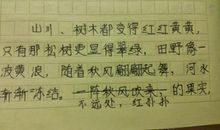 山川、树木都变得红红黄黄,
只有那松树更显得翠绿,田野像一
波黄浪,随着秋风翩翩起舞,河水
渐渐冻结。一阵秋风吹来,的果实
不远处,红扑扑